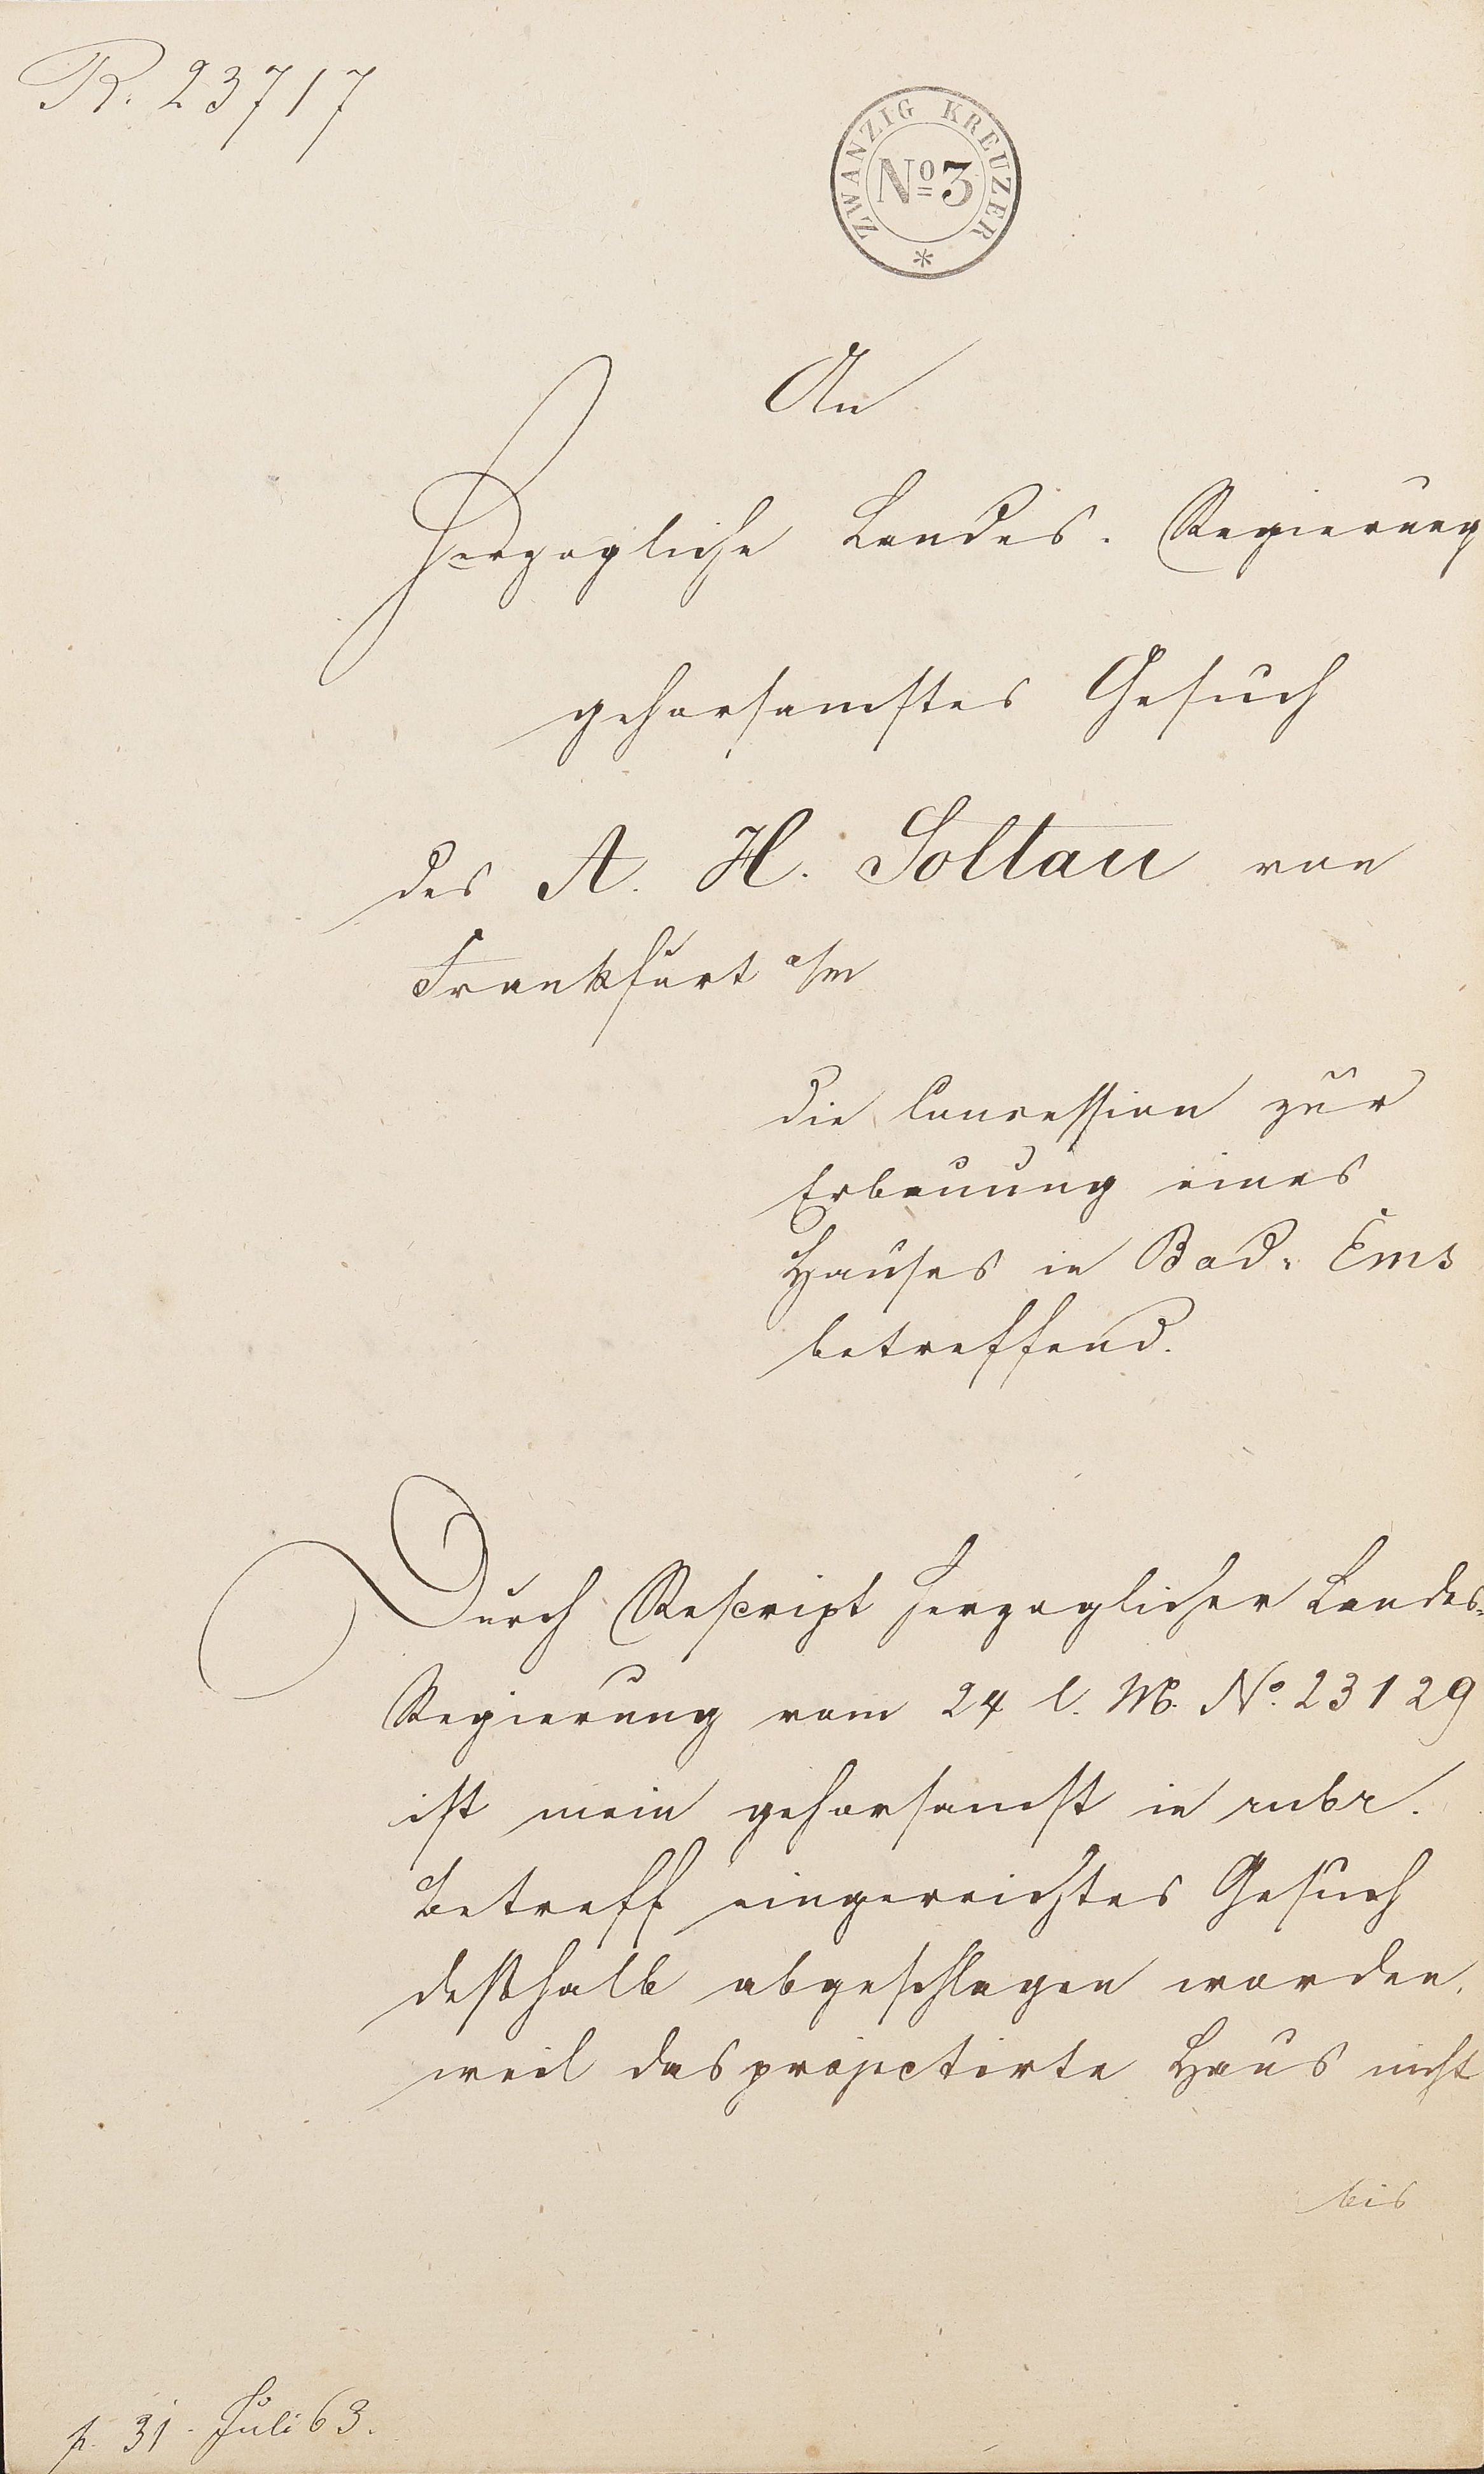 R. 23717
ZWANZIG KREUZER
No 3
*
An
Herzogliche Landes-Regierung
gehorsamstes Gesuch
des A. H. Soltau von
Frankfurt a/m
die Concession zur
Erbauung eines
Hauses in Bad-Ems
betreffend.
Durch Rescript Herzoglicher Landes-
Regierung vom 24 l. M. No. 23129
ist mein gehorsamst in rubr.
Betreff eingereichtes Gesuch
deßhalb abgeschlagen worden,
weil das projectirte Haus nicht
bis
p. 31. Juli 63.